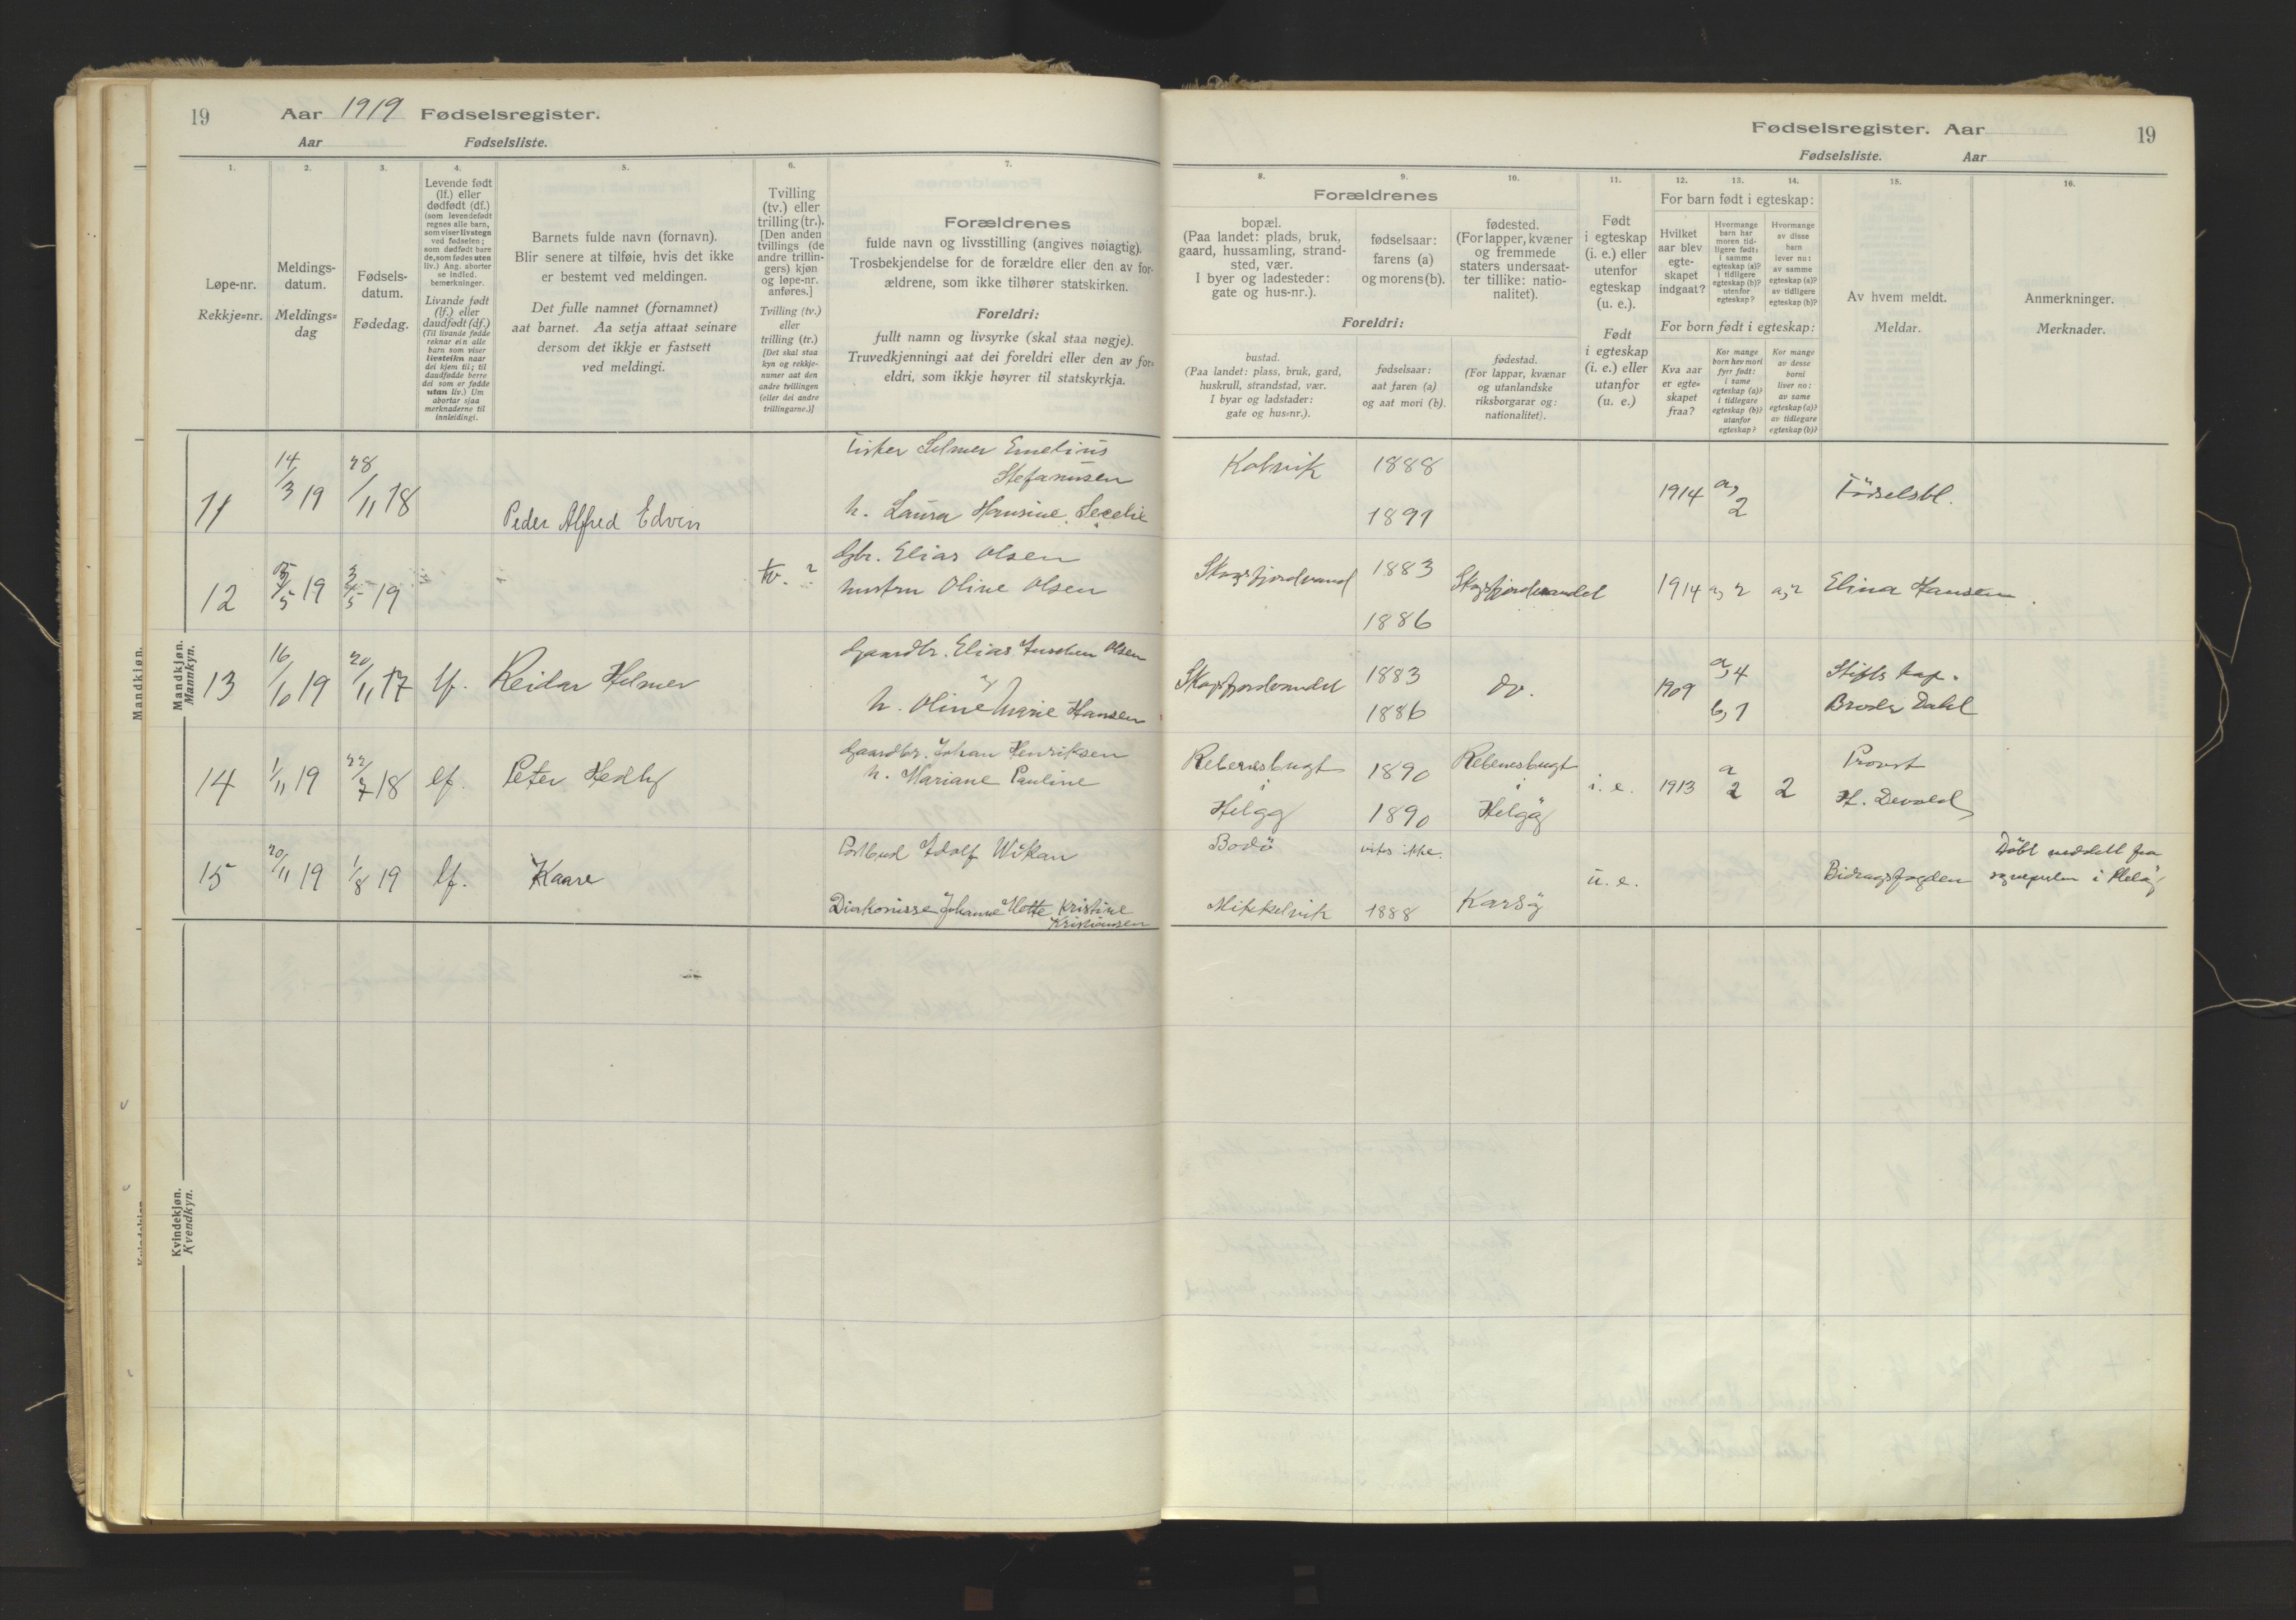 19 Aar 1919 Fødselsregister.
Aar Fødselsliste.
1. 2. 3. 4. 5. 6. 7.
Løpe-nr.
Rekkje=nr.
Meldings-
datum.
Meldings=
dag
Fødsels-
datum.
Fødedag.
Levende født
(lf.) eller
dødfødt (df.)
(som levendefødt
regnes alle barn,
som viser livstegn
ved fødselen;
som dødfødt bare
de, som fødes uten
liv.) Ang. aborter
se indled.
bemerkninger.
Livande født
(lf.) eller
daudfødt (df.)
(Til livande fødde
reknar ein alle
barn som viser
livsteikn naar
dei kjem til; til
daudfødde berre
dei som er fødde
utan liv.) Um
abortar sjaa
merknaderne til
innleidingi.
Barnets fulde navn (fornavn).
Blir senere at tilføie, hvis det ikke
er bestemt ved meldingen.
Det fulle namnet (fornamnet)
aat barnet. Aa setja attaat seinare
dersom det ikkje er fastsett
ved meldingi.
Tvilling
(tv.) eller
trilling (tr.).
[Den anden
tvillings (de
andre trillin-
gers) kjøn
og løpe-nr.
anføres.]
Tvilling (tv.)
eller
trilling (tr.)
[Det skal staa
kyn og rekkje-
numer aat den
andre tvillingen
(eller dei andre
trillingarne.)]
Forældrenes
fulde navn og livsstilling (angives nøiagtig).
Trosbekjendelse for de forældre eller den av for-
ældrene, som ikke tilhører statskirken.
Foreldri:
fullt namn og livsyrke (skal staa nøgje).
Truvedkjenningi aat dei foreldri eller den av for=
eldri, som ikkje høyrer til statskyrkja.
Mandkjøn.
Mandkjøn.
Mannkyn.
11 14/3 19 28/11 18 Peder Alfred Edvin
Fisker Selmer Emelius
Stefanusen
h. Laura Hansine
12 /5 19 /5 19 tv. ?
Gbr. Elias Olsen
hustru Oline Olsen
13 16/10 19 20/11 17 lf. Reidar Helmer
Gaardbr. Elias Olsen
h. Oline Marie Hansen
14 1/11 19 22/7 18 lf. Peter Hedly
Gaardbr. Johan Henriksen
h. Mariane Pauline
15 20/11 19 1/8 19 lf. Kaare
Postbud Adolf Wikan
Diakonisse Johanne Mette Kristine
Kristiansen
Kvindekjøn.
Kvendkyn.
Fødselsregister. Aar 19
Fødselsliste. Aar
8. 9. 10. 11. 12. 13. 14. 15. 16.
Forældrenes
bopæl.
(Paa landet: plads, bruk,
gaard, hussamling, strand-
sted, vær.
I byer og ladesteder:
gate og hus-nr.).
fødselsaar:
farens (a)
og morens (b).
fødested.
(For lapper, kvæner
og fremmede
staters undersaat-
ter tillike: natio-
nalitet).
Foreldri:
bustad.
(Paa landet: plass, bruk, gard,
huskrull, strandstad, vær.
I byar og ladstader:
gate og hus=nr.).
fødselsaar:
aat faren (a)
og aat mori (b).
fødestad.
(For lappar, kvænar
og utanlandske
riksborgarar og:
nationalitet).
Født
i egteskap
(i. e.) eller
utenfor
egteskap
(u. e.).
Født
i egteskap
(i. e.) eller
utanfor
(u. e.)
For barn født i egteskap:
Hvilket
aar blev
egte-
skapet
indgaat?
Hvormange
barn har
moren tid-
ligere født:
i samme
egteskap (a)?
i tidligere
egteskap (b)?
utenfor
egteskap?
Hvormange
av disse
barn
lever nu:
av samme
egteskap (a)?
av tidligere
egteskap (b)?
For born født i egteskap:
Kva aar
er egte=
skapet
fraa?
Kor mange
born hev mori
fyrr født:
i same
egteskap (a)?
i tidlegare
egteskap (b)?
utanfor
egteskap?
Kor mange
av desse
borni
liver no:
av same
egteskap (a)?
av tidlegare
egteskap (b)?
Av hvem meldt.
Meldar.
Anmerkninger.
Merknader.
Kobvik 1888 1914 a, 2 Fødselsbl.
1891
Skogsfjordvand 1883 Skogsfjordvandet 1914 a, 2 a, 2 Elina Hansen.
1886
Skogsfjordvandet 1883 do. 1909 a, 4 Stifts kap.
1886 b, 1 Broder Dahl
Rebenesbugt 1890 Rebenesbugt i. e. 1913 a 2 2 Provst
i i
Helgø 1890 Helgø H. Devold
Bodö vites ikke. u. e. Bidragsfogden
Mikkelvik 1888 Karsöy
Döbt meddelt fra
sogneprsten i